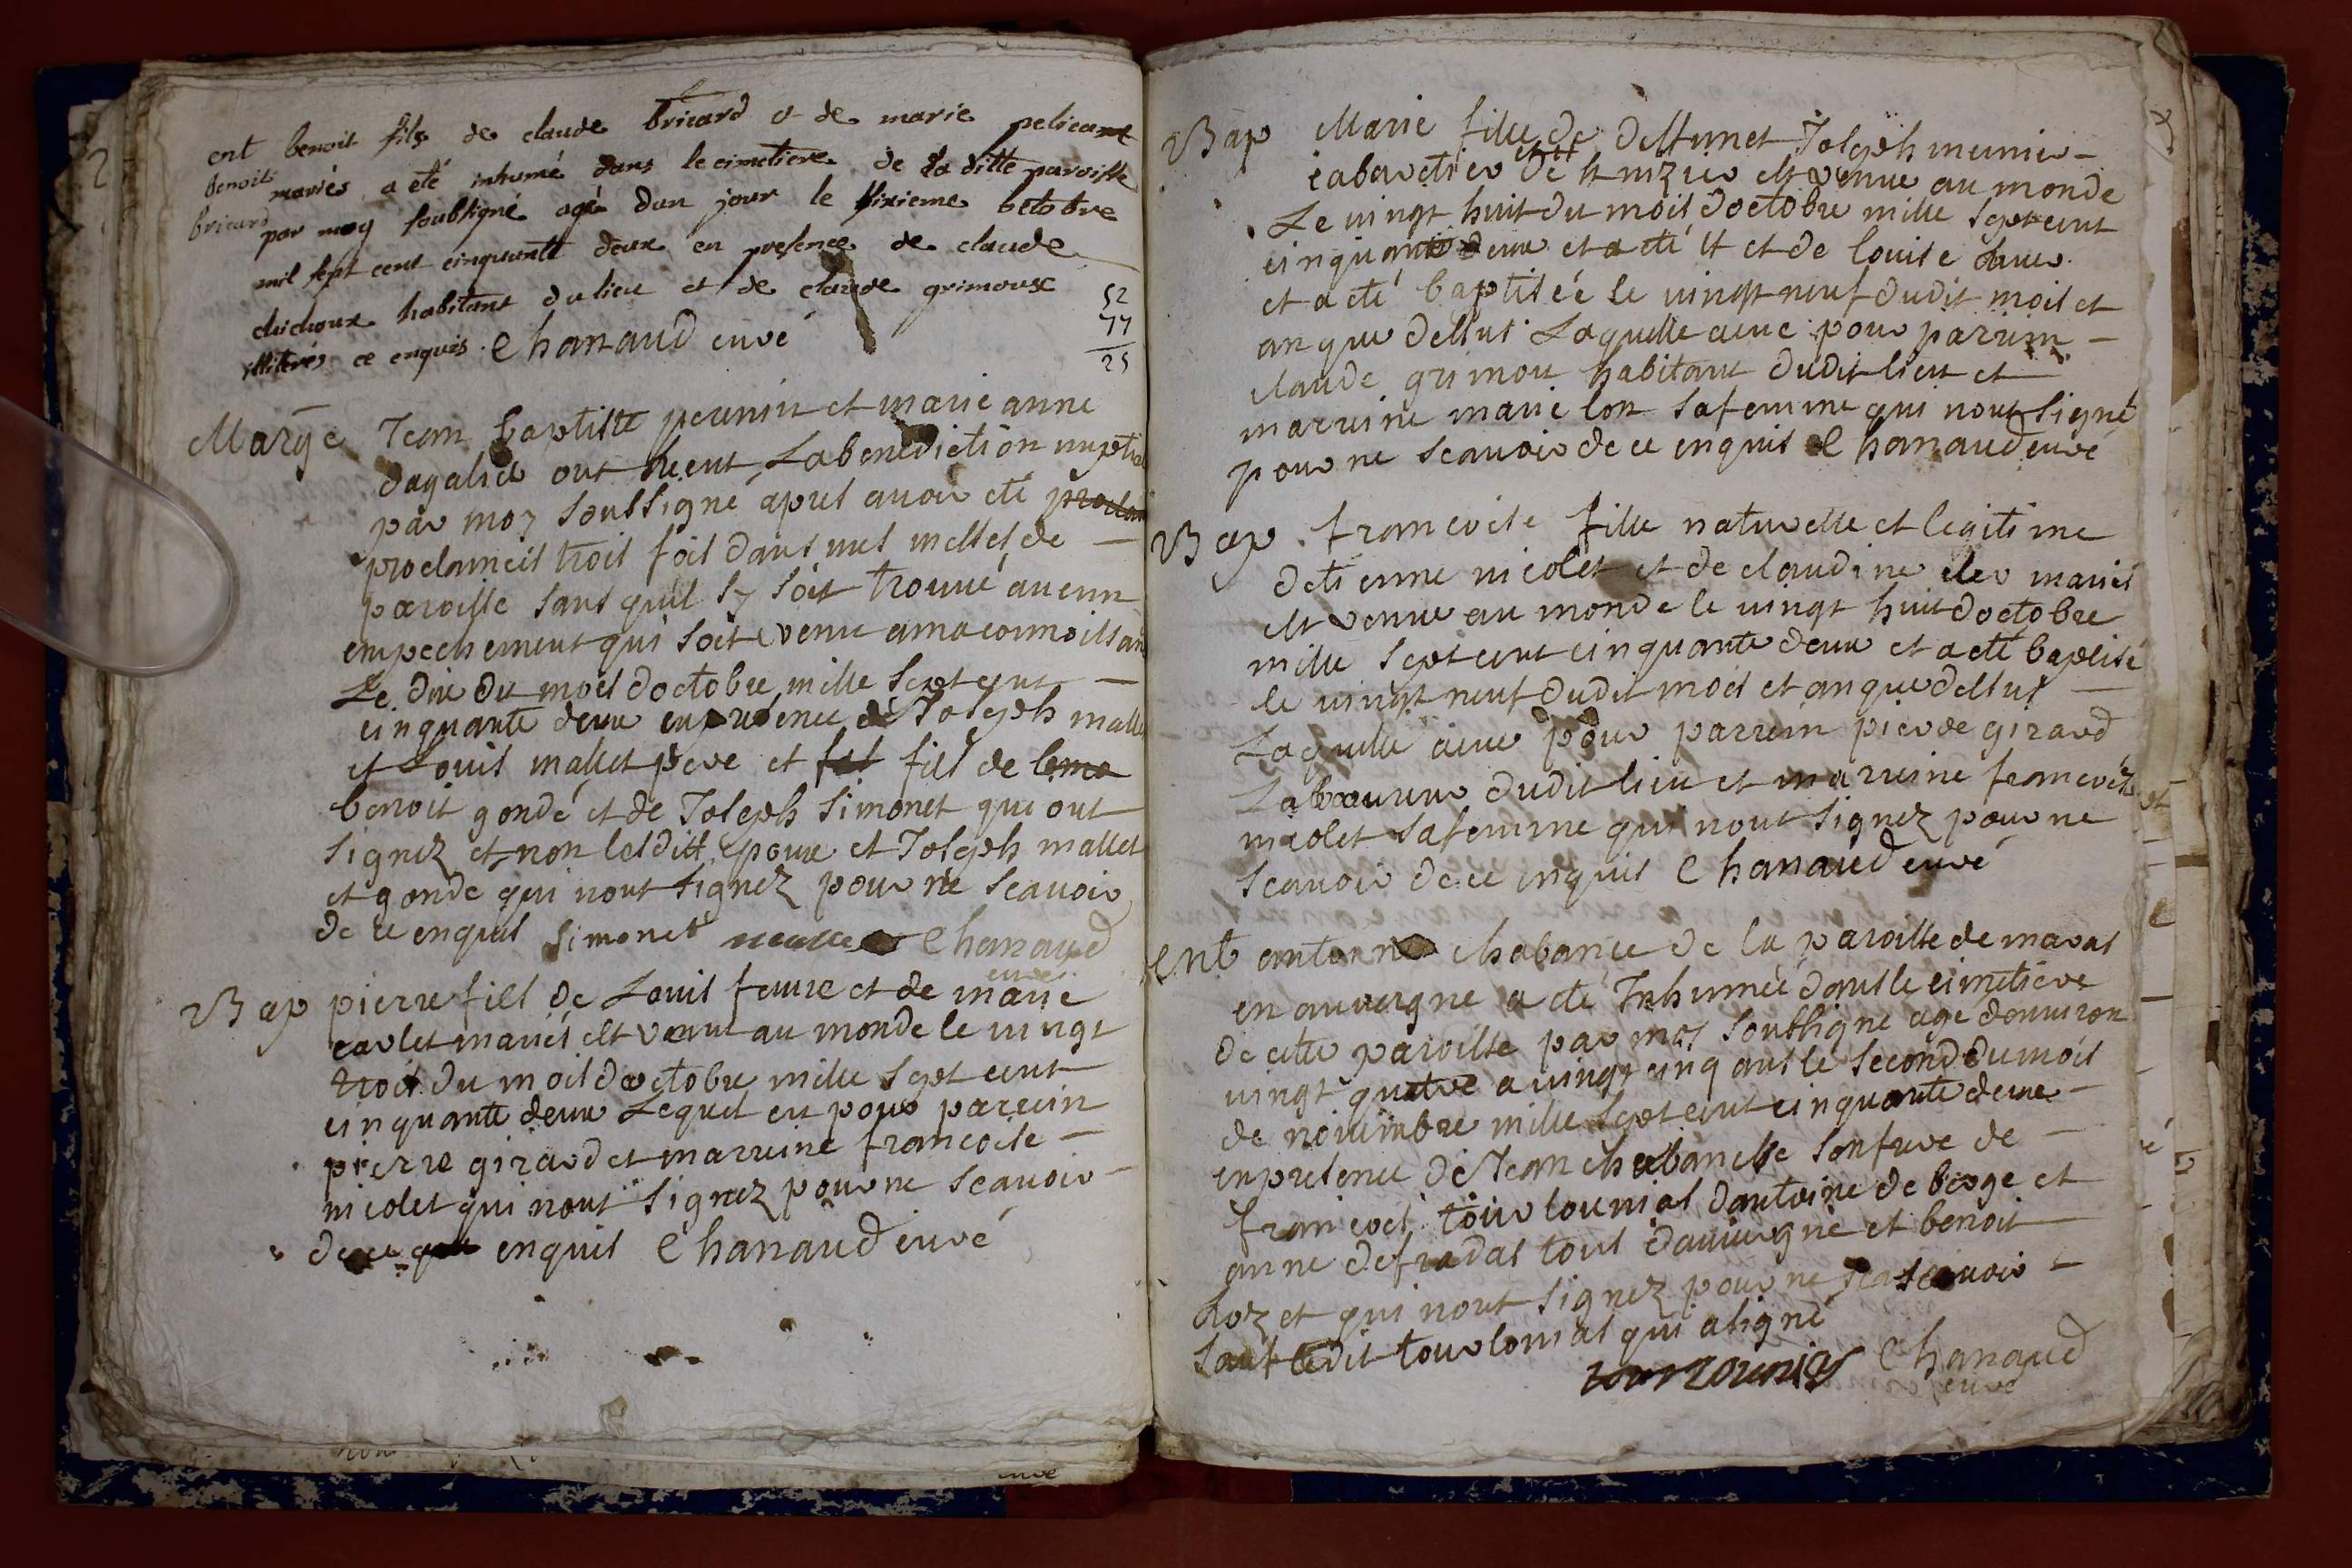 ent benoit fils de claude bricard et de marie pelican
benoit mariés a eté inhumé dans le cimetiere de la ditte paroisse
bricard par moy soubsigné agé dun jour le sixieme octobre
mil sept cent cinquante deux en presence de claude
chichoux habitant du lieu et de claude grimoux
illiterés ce enquis chanaud curé
52
77
25
Marge Jean baptiste perunin et marie anne
dagalier ont receut La benediction nuptia
par moy soussigné apres avoir eté
proclameis trois fois dans mes messes de
paroisse sans quil sy soit trouvé aucun
empechement qui soit venu a ma connoissan
Le dix du mois doctobre mille sept cent
cinquante deux en presence de Joseph malle
et Louis mallet pere et fils de
benoit gondé et de Joseph simonet qui ont
signez et non lesdits epoux et Joseph mallet
et gonde qui nont signez pour ne scavoir
de ce enquis simonet chanaud
curé
Bap pierre fils de Louis feure et de marie
carlet mariés est venu au monde le vingt
trois du mois doctobre mille sept cent
cinquante deux Lequel eu pour parrein
pierre girard et marreine francoise
nicolet qui nont signez pour ne scavoir
de ce enquis chanaud curé
Bap Marie fille de deffunct Joseph meunier
cabaretier de est venue au monde
Le vingt huit du mois doctobre mille sept cent
cinquante deux et a eté et de louise
et a eté baptiseé le vingt neuf dudit mois et
an que dessus Laquelle a eue pour parrein
claude grimou habitant dudit lieu et
marreine marie lon sa femme qui nont signé
pour ne scavoir de ce enquis chanaud curé
Bap francoise fille naturelle et legitime
detienne nicolet et de claudine mariés
est venue au monde le vingt huit doctobre
mille sept cent cinquante deux et a eté baptisé
le vingt neuf dudit mois et an que dessus
Laquelle a eue pour parrein pierre girard
Laboureur dudit lieu et marreine francoise
nicolet sa femme qui nont signez pour ne
scavoir de ce enquis chanaud curé
ent antoine chabance de la paroisse de marat
en auvergne a eté Inhumée dans le cimetiere
de cette paroisse par moy soussigne agé denviron
vingt quatre a vingt cinq ans le second du mois
de novembre mille sept cent cinquante deux
en presence de Jean chabanche son frere de
francois tourlounias dantoine de borge et
anne defradas tous dauvergne et benoit
et qui nont signez pour ne scavoir
sauf ledit tourlonias qui a signé
tourlounias chanaud
curé